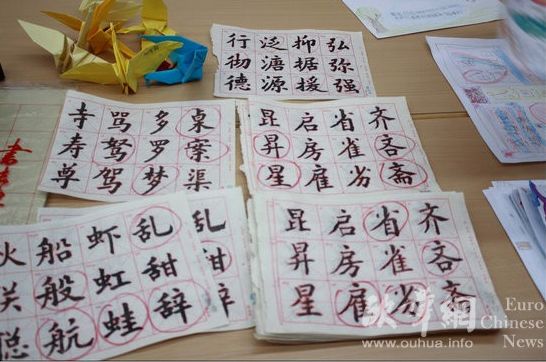 行 泛 抑 弘
彻 溏 据 弥
德 源 援 强
寺 骂 多 桌
寿 驽 罗 案
尊 驾 梦 渠
昆 启 省 齐
昇 房 雀 吝
星 雇 劣 斋
火 船 虾 乱
般 虹 甜
聪 航 蛙 辞
乱
甜
辞
昆 启 省 齐
昇 房 雀 吝
星 雇 劣 斋
欧华網
www.ouhua.info
Euro
Chinese
News